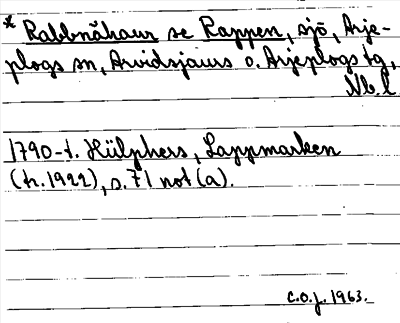 * Rabbnåhaur se Rappen, sjö, Arje-
plogs sn, Arvidsjaurs o. Arjeplogs tg,
Nb.l.
1790-t. Hülphers, Lappmarken
(tr. 1922), s. 71 not (a).
C.O.J. 1963.